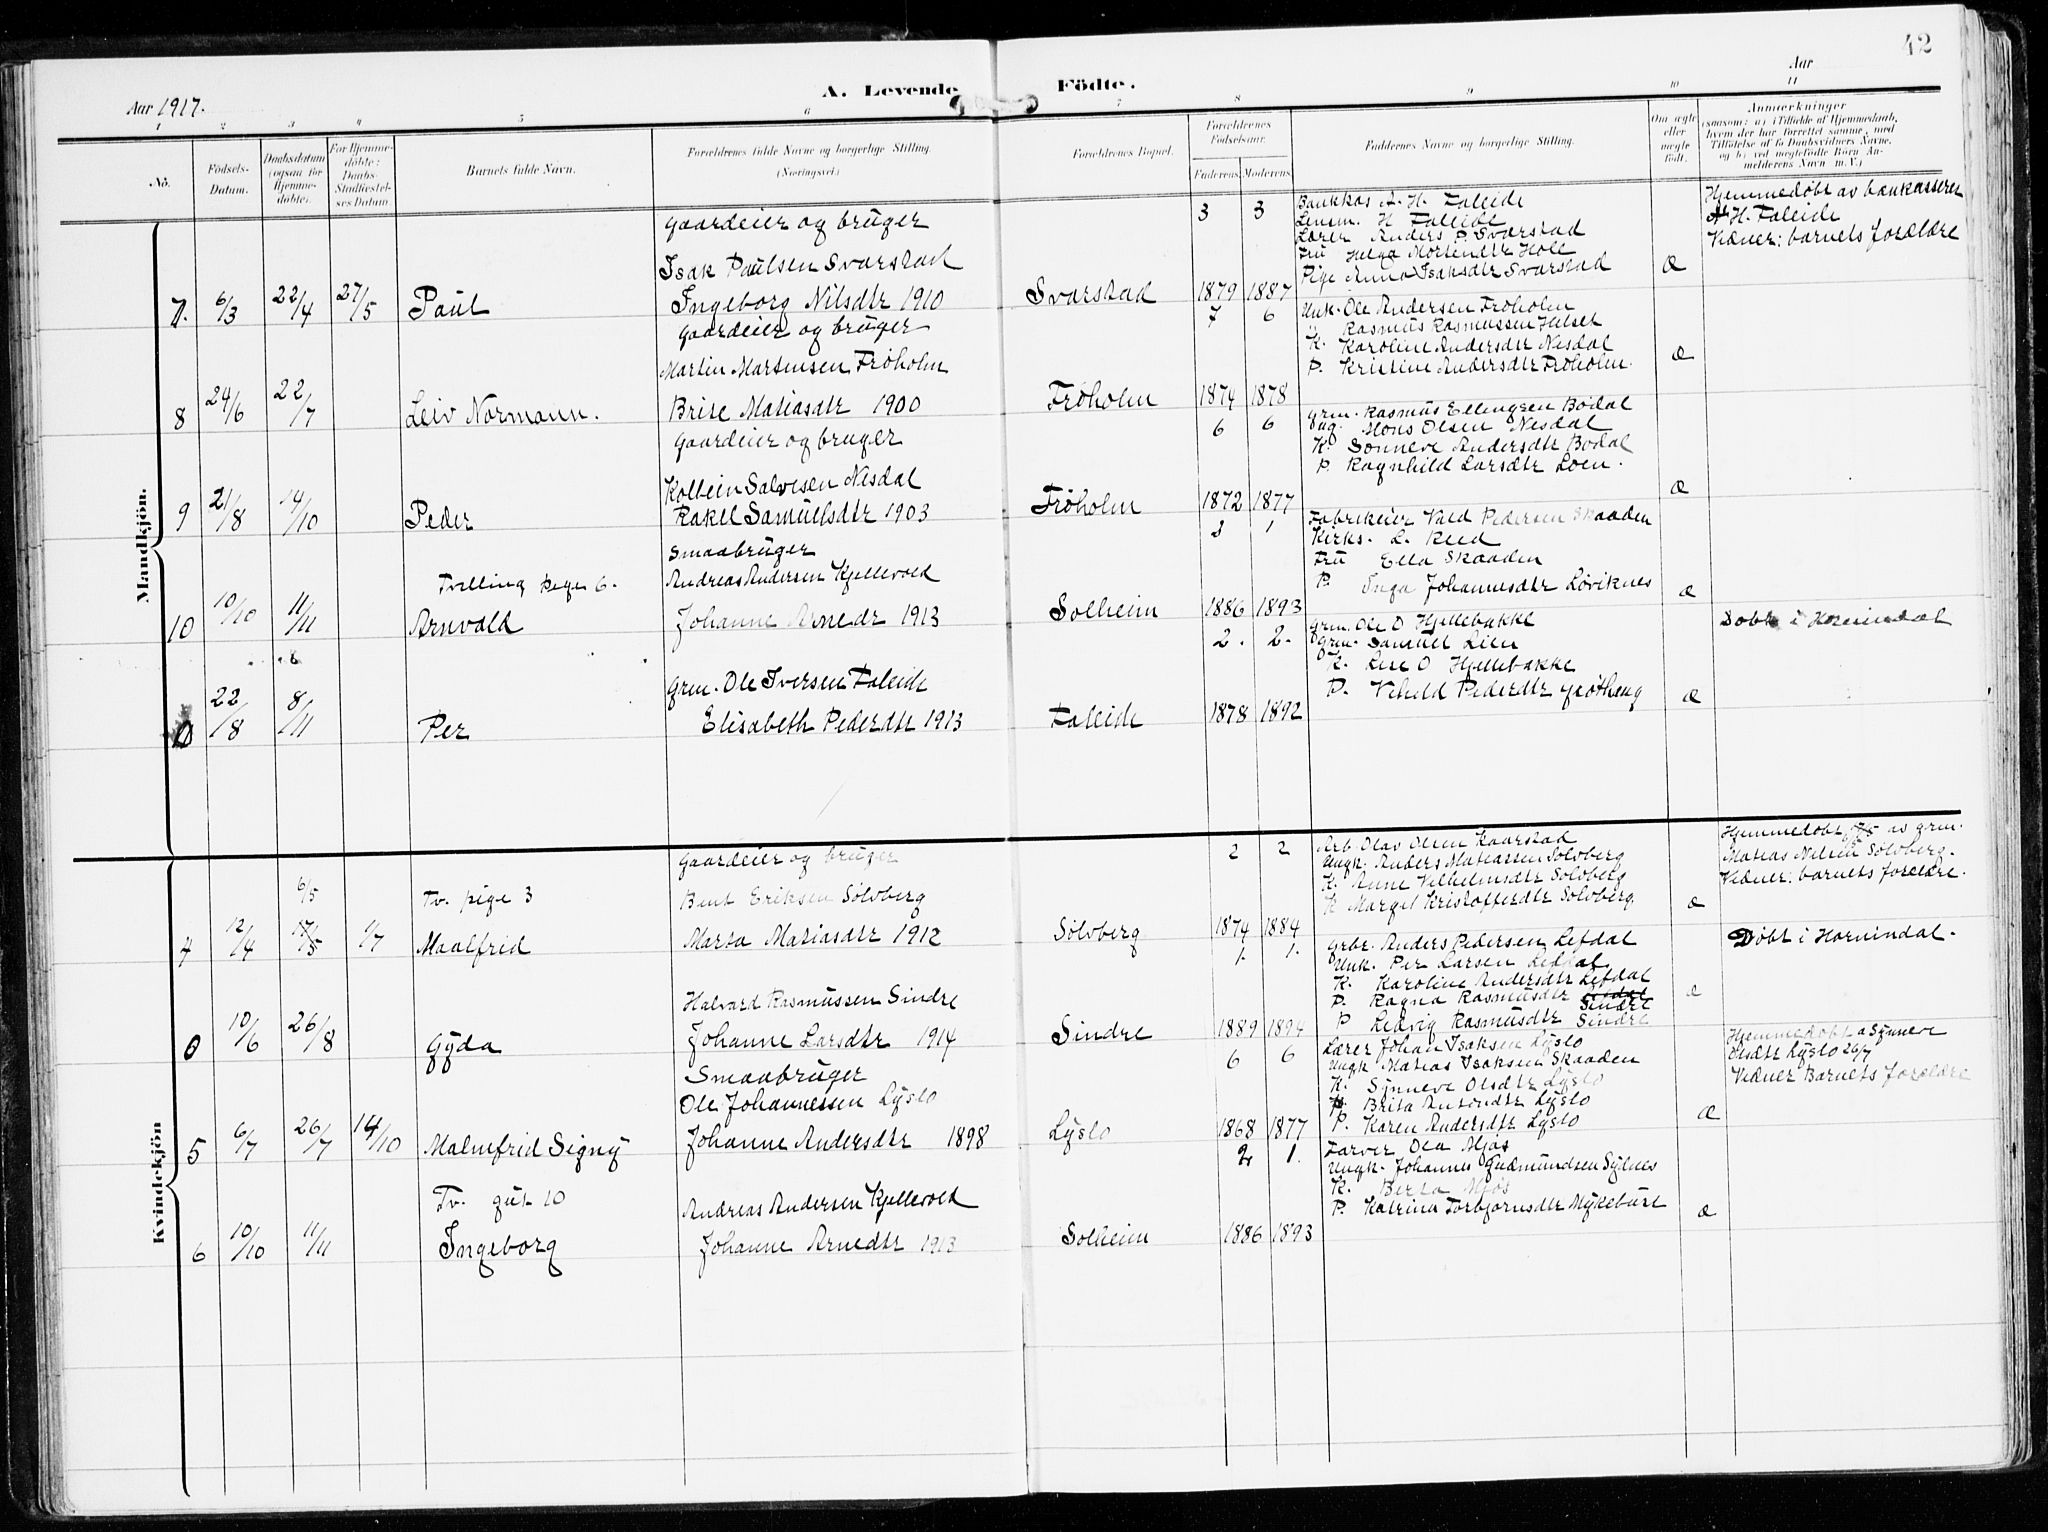 42
Aar 1917.
A. Levende Födte.
Aar
1 2 3 4 5 6 7 8 9 10 11
Nô.
Födsels-Datum.
Daabsdatum (ogsaa for Hjemme-döbte).
For Hjemme-döbte: Daabs-Stadfæstel-ses Datum
Barnets fulde Navn.
Forældrenes fulde Navne og borgerlige Stilling.
(Næringsvei.)
Forældrenes Bopæl.
Forældrenes Födselsaar.
Faderens Moderens
Faddernes Navne og borgerlige Stilling.
Om ægte eller uægte födt.
Anmærkninger
(saasom: a) i Tilfælde af Hjemmedaab, hvem der har forrettet samme, med Tilföielse af to Daabsvidners Navne, og b) ved uægtefödte Börn An-melderens Navn m. V.)
Mandkjön.
Gaardeier og bruger
Isak Paulsen Svarstad
7. 6/3 22/4 27/5 Paul Ingeborg Nilsdtr 1910 Svarstad 1879 1887 Æ
3 3
Bankkas A. H. Faleide
Lensm. H Faleide
Lærer Anders P. Svarstad
Fru Helga Mortensdtr Hole
Pige Anna Isaksdtr Svarstad
Hjemmedøbt av bankasserer
A H. Faleide
Vidner: barnets forældre
Gaardeier og bruger
Martin Martensen Frøholm
8 24/6 22/7 Leiv Normann. Brite Matiasdtr 1900 Frøholm 1874 1878 Æ
7 6
Unk. Ole Andersen Frøholm
" Rasmus Rasmussen Hilset
K. Karoline Andersdtr Nesdal
P. Kristine Andersdtr Frøholm.
Gaardeier og bruger
Kolbein Salvesen Nesdal
9 21/8 14/10 Peder Rakel Samuelsdtr 1903 Frøholm 1872 1877 Æ
6 6
Grm. Rasmus Ellingsen Bødal
Ug. Mons Olsen Nesdal
K. Sønneve Andersdtr Bødal
P. Ragnhild Larsdtr Loen.
Smaabruger
Tvilling pige 6. Andreas Andersen Kjellevold
10 10/10 11/11 Arnvald Johanne Arnedr 1913 Solheim 1886 1893 Æ
3 1
Fabrikeier Vald Pedersen Skaaden
Kirks. L. Reed
Fru Ella Skaaden
P. Inga Johannesdtr Løviknes
Grm. Ole Iversen Faleide
0 22/8 8/11 Per Elisabeth Pedersdtr 1913 Faleide 1878 1892 Æ
2. 2.
Grm. Ole O Hjellebakke
Grm. Samuel Lien
K. Lise O Hjellebakke
P. Vihild Pedersdtr Grøthaug
Døbt i Hornindal
Kvindekjön
Gaardeier og bruger
6/5 Tv. pige 3 Bent Eriksen Sølvberg
4 12/4 17/5 1/7 Maalfrid Marta Matiasdtr 1912 Sølvberg 1874 1884 Æ
2 2
Arb Olav Olsen Kaarstad
Ungk. Anders Matiassen Sølvberg
K. Anne Vilhelmsdtr Sølvberg
K Margit Kristoffersdtr Sølvberg
Hjemmedøbt 6/5 av grm.
Matias Nilsen Sølvberg.
Vidner: barnets forældre.
Halvard Rasmussen Sindre
0 10/6 26/8 Gyda Johanne Larsdtr 1914 Sindre 1889 1894 Æ
1. 1.
Grbr. Anders Pedersen Lefdal
Unk. Per Larsen Lefdal
K. Karoline Andersdtr Lefdal
P. Ragna Rasmusdtr Sindre
P Ledvig Rasmusdtr Sindre
Døbt i Hornindal.
Smaabruger
Ole Johannessen Lyslo
5 6/7 26/7 14/10 Malmfrid Signy Johanne Andersdtr 1898 Lyslo 1868 1877 Æ
6 6
Lærer Johan Isaksen Lyslo
Ungk Matias Isaksen Skaaden
K. Synneve Olsdtr Lyslo
K. Brita Antondtr Lyslo
P. Karen Andersdtr Lyslo
Hjemmedøbt a Synneve
Olsdtr Lyslo 26/7
Vidner Barnets forældre
Tv. gut 10 Andreas Andersen Kjellevold
6 10/10 11/11 Ingeborg Johanne Arnedtr 1913 Solheim 1886 1893 Æ
2 1.
Farver Ola Mjøs
Ungk. Johannes Gudmundsen Sylnes
K. Berta Mjøs
P. Katrina Torbjørnsdtr Myklebust